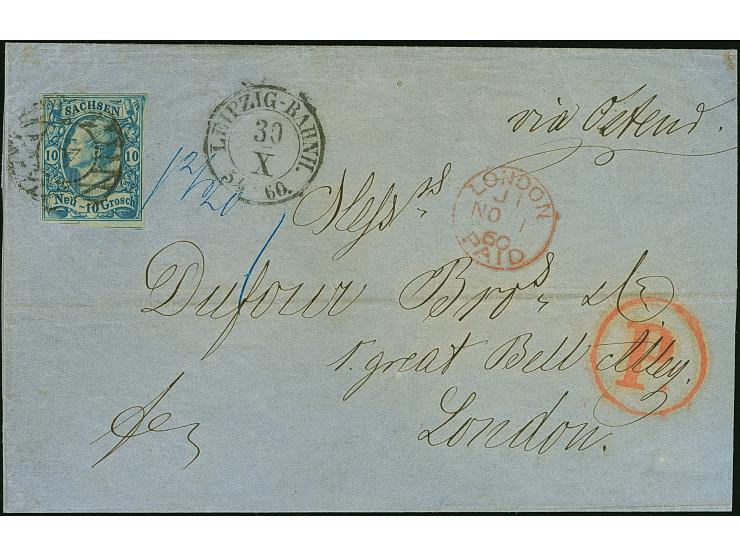 SACHSEN
10 10
Neu-10 Grosch
LEIPZIG-BAHNH.
30
X
60.
via Ostend.
LONDON
J1
NO 1
60
PAID
Mess.rs
Dufour Bros. &c
5. great Bell Alley.
P.
London.